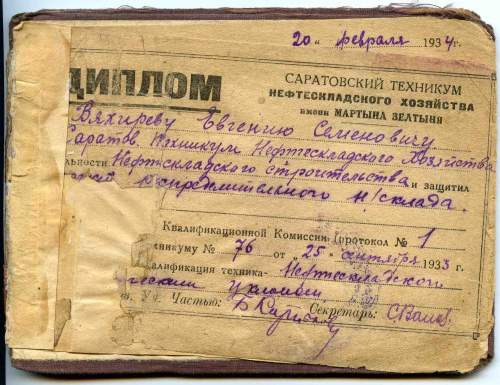 20 „ февраля 1934 г.
ДИПЛОМ
САРАТОВСКИЙ ТЕХНИКУМ
НЕФТЕСКЛАДСКОГО ХОЗЯЙСТВА
имени МАРТЫНА ЗЕЛТЫНЯ
Вяхиреву Евгению Семеновичу
Саратов. Техникум Нефтескладского Хозяйства
льности Нефтескладского строительства и защитил
распределительного н/склада.
Квалификационной Комиссии (протокол № 1
никуму № 76 от „25„ сентября 1933 г.
алификация техника- Нефтескладского

Уч. Частью: Секретарь: